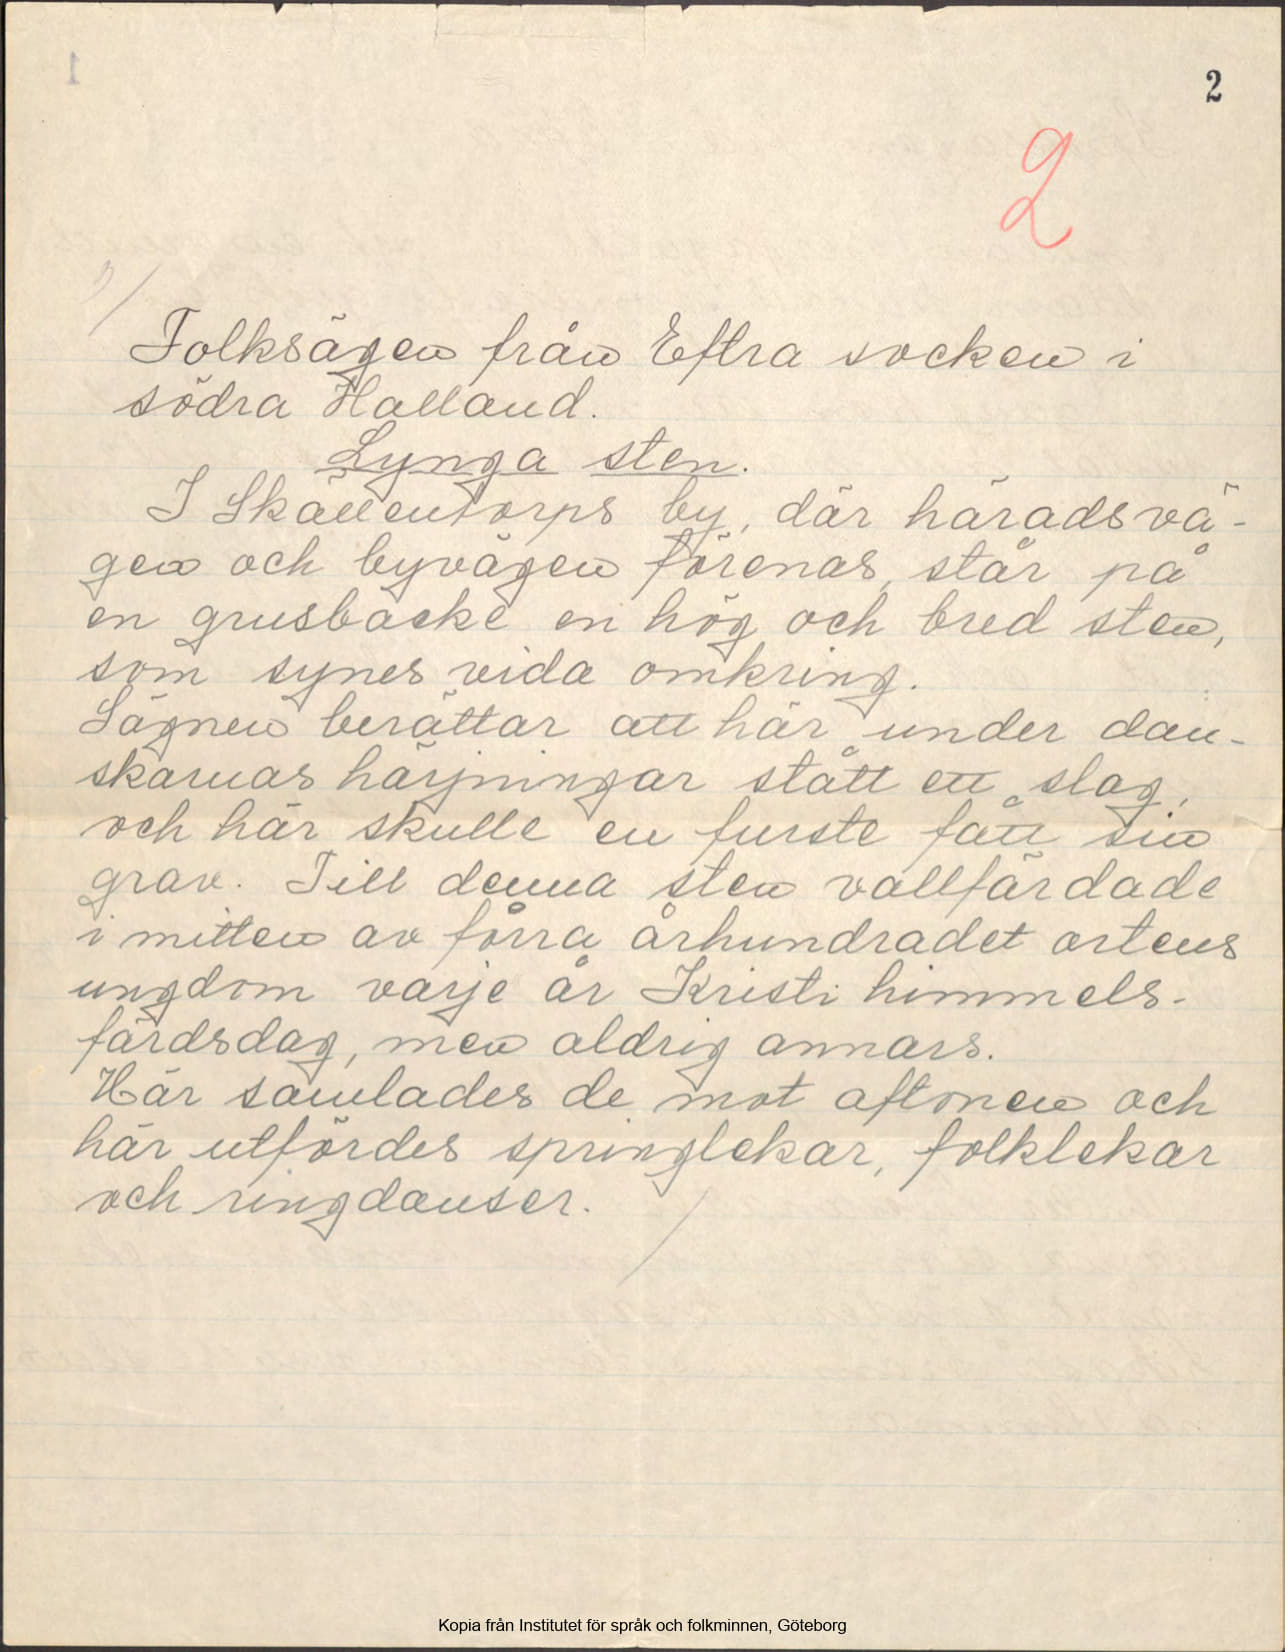 2
2
1)
Folksägen från Eftra socken i
södra Halland.
Lynga sten.
I Skällentorps by, där häradsvä-
gen och byvägen förenas, står på
en grusbacke en hög och bred sten,
som synes vida omkring.
Sägnen berättar att här under dan-
skarnas härjningar stått ett slag,
och här skulle en furste fått sin
grav. Till denna sten vallfärdade
i mitten av förra århundradet ortens
ungdom varje år Kristi himmels-
färdsdag, men aldrig annars.
Här samlades de mot aftonen och
här utfördes springlekar, folklekar
och ringdanser.
Kopia från Institutet för språk och folkminnen, Göteborg